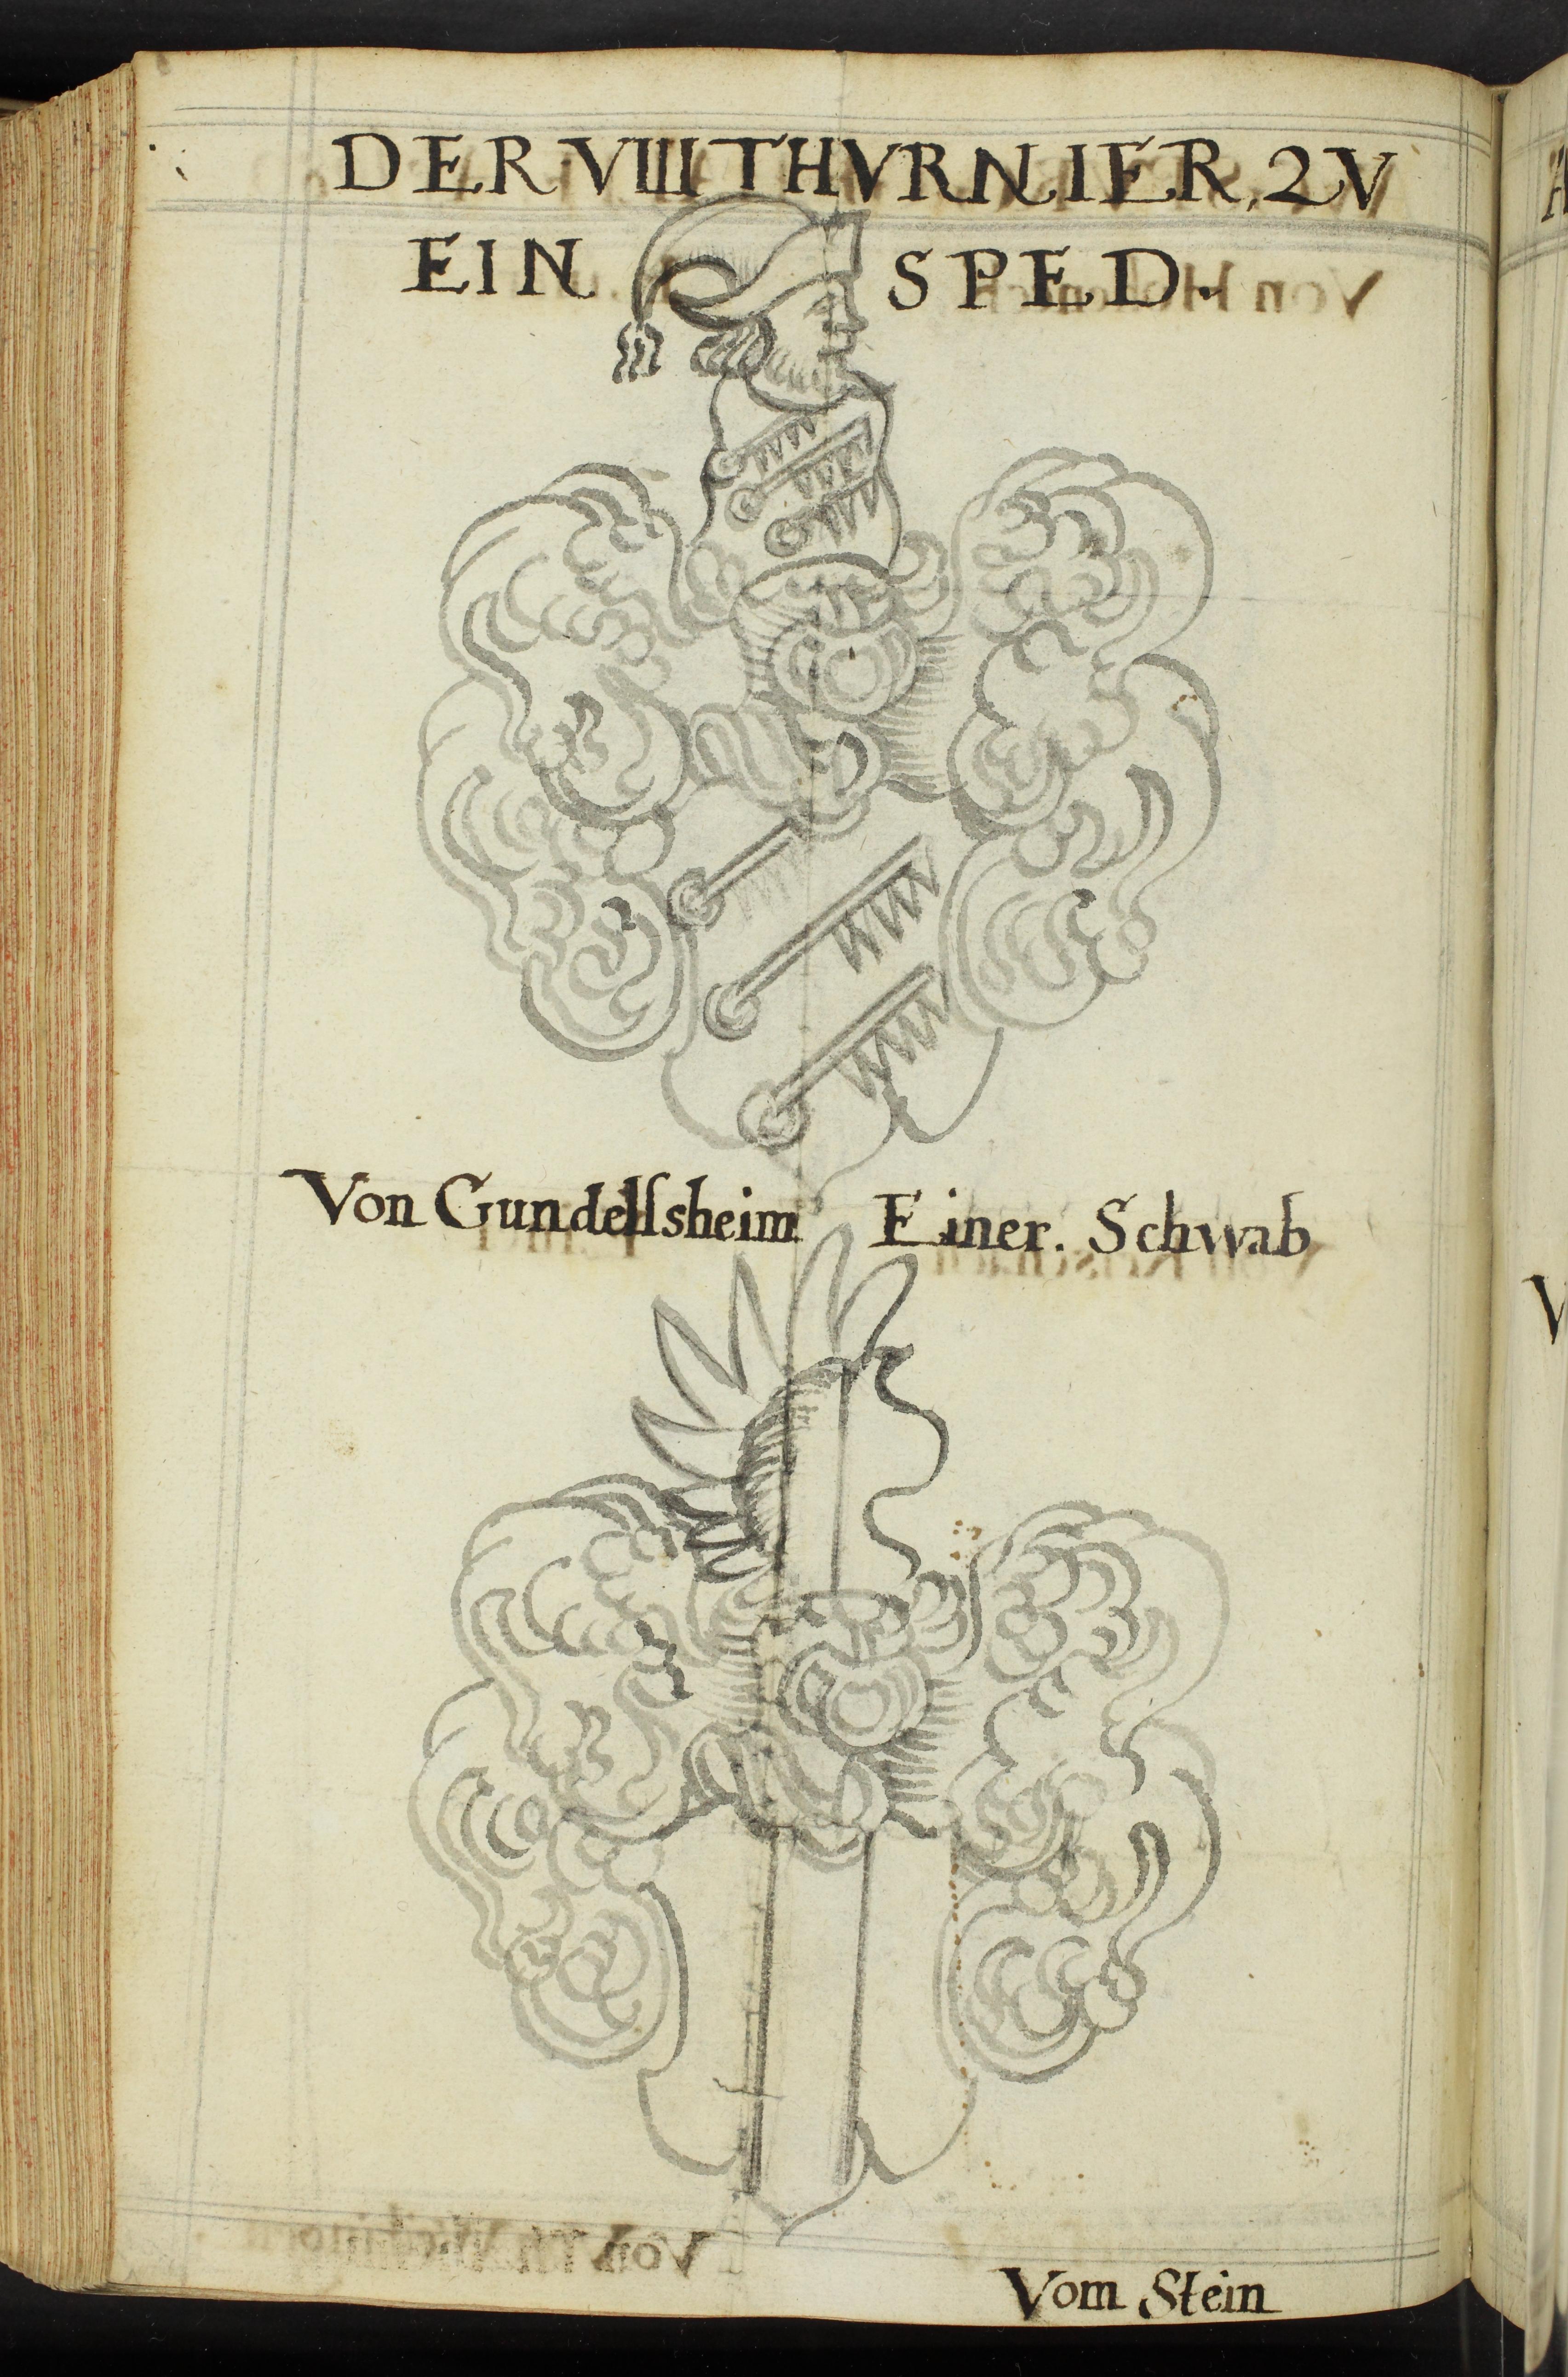 DER VIII THVRNIER, ZV
EIN SPED.
Von Gundelſsheim Einer. Schwab
Vom Stein